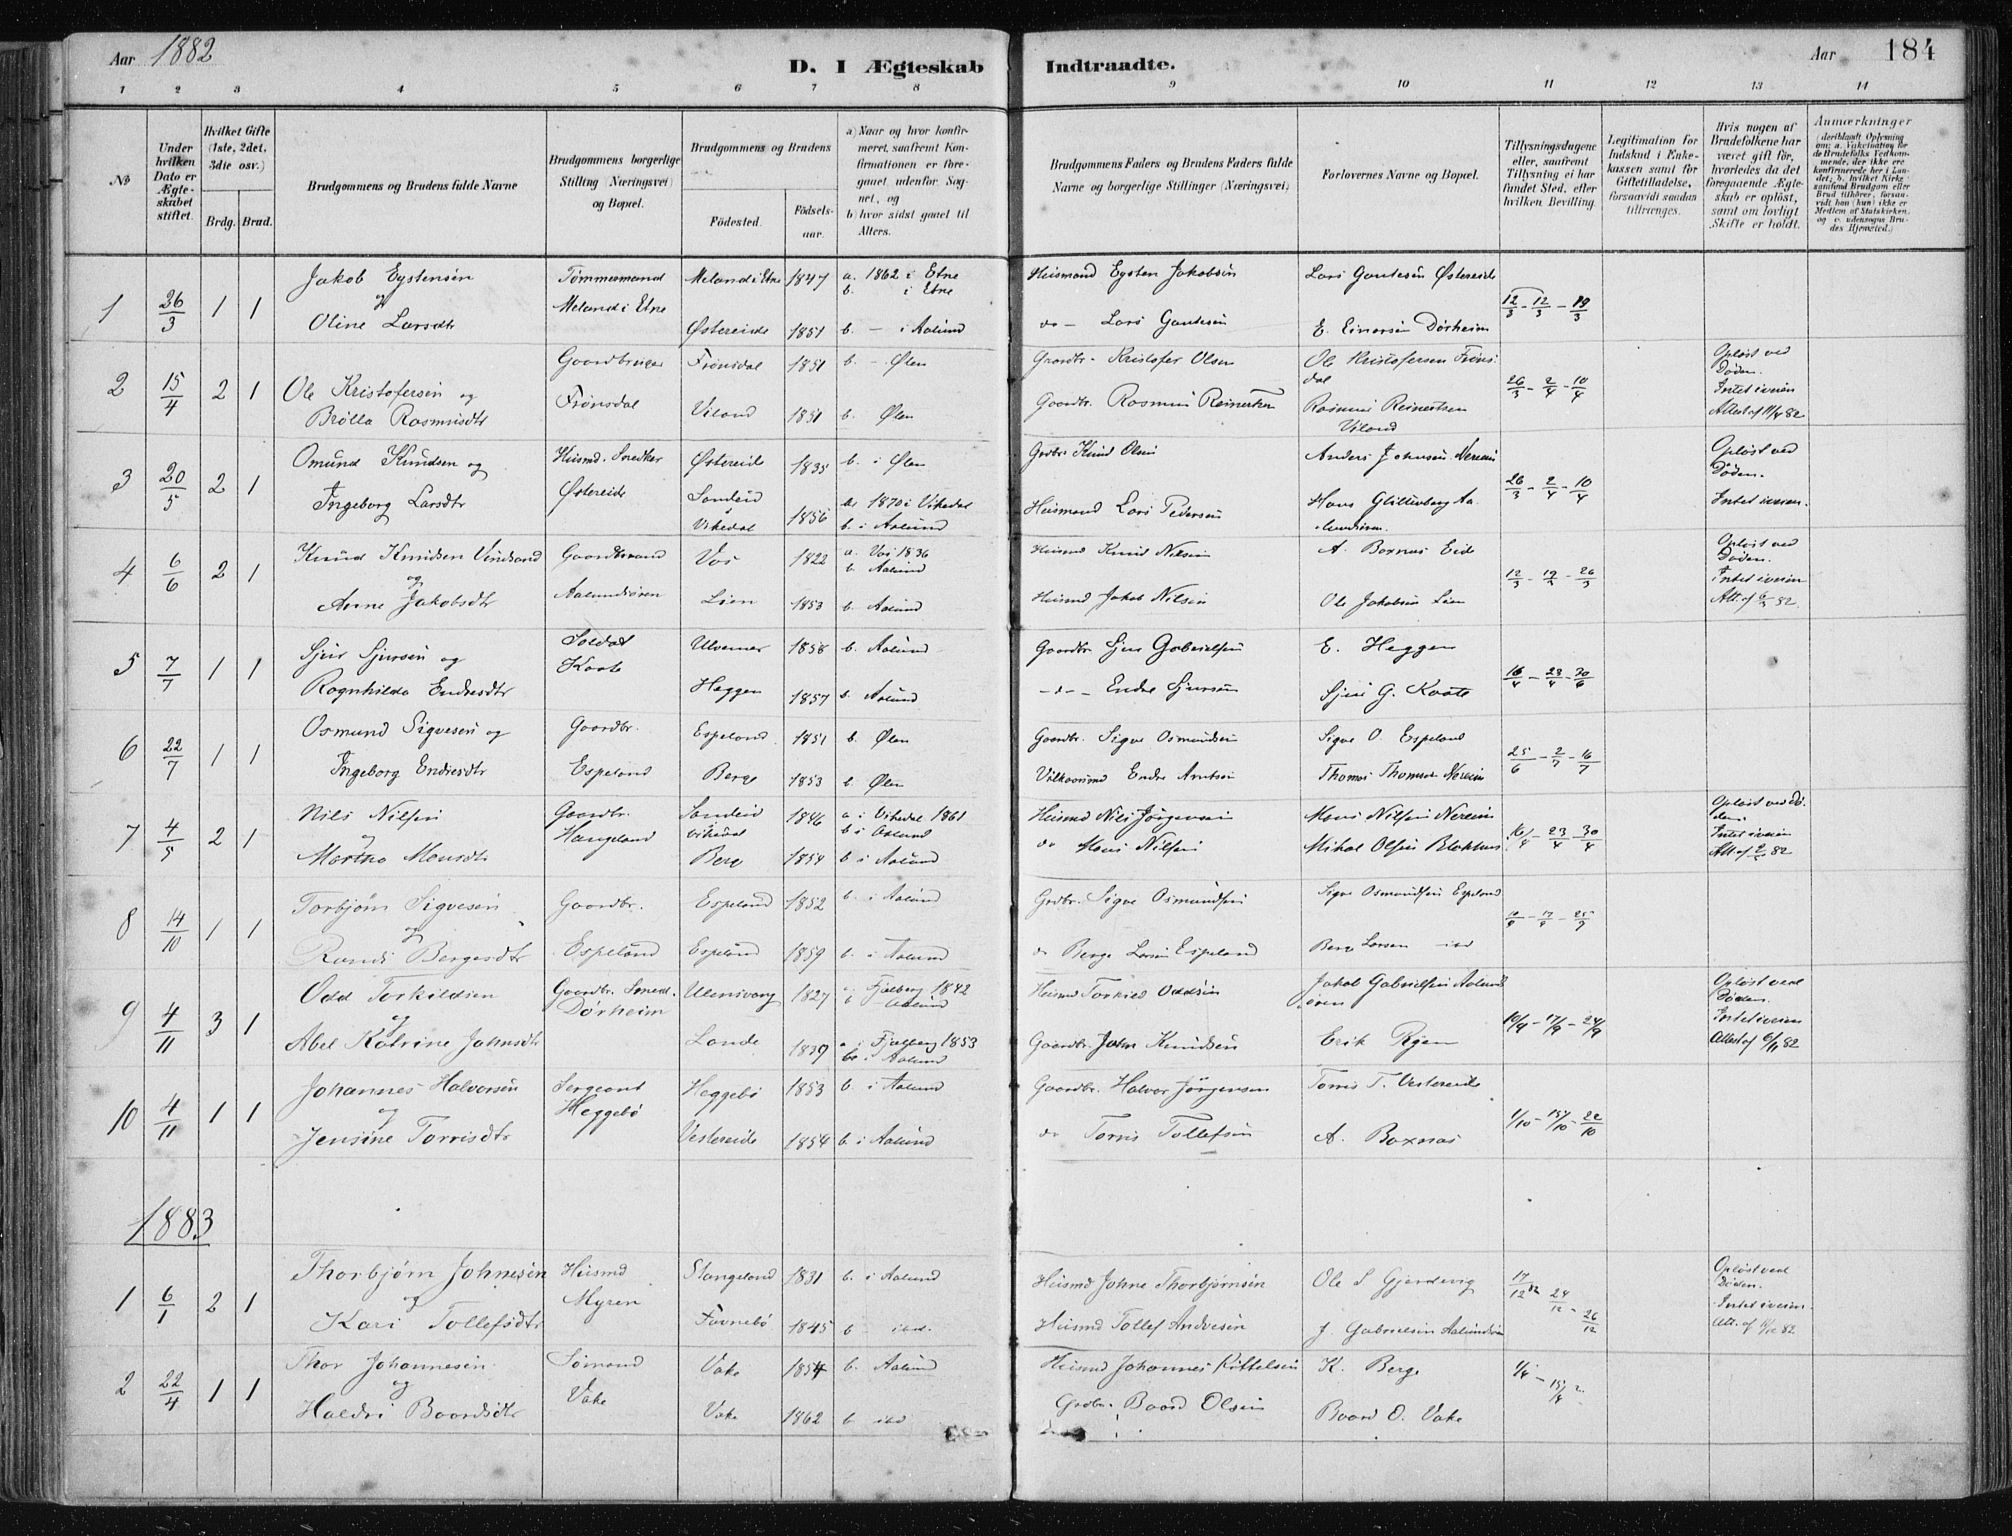 Aar 1882
D. I Ægteskab Indtraadte.
Aar 184
1 2 3 4 5 6 7 8 9 10 11 12 13 14
№
Under hvilken Dato er Ægteskabet stiftet.
Hvilket Gifte (1ste, 2det, 3die osv.)
Brdg. Brud.
Brudgommens og Brudens fulde Navne
Brudgommens borgerlige Stilling (Næringsvei) og Bopæl.
Brudgommens og Brudens
Födested. Födselsaar.
a) Naar og hvor konfirmeret, saafremt Konfirmationen er foregaaet udenfor Sognet, og
b) hvor sidst gaaet til Alters.
Brudgommens Faders og Brudens Faders fulde Navne og borgerlige Stillinger (Næringsvei)
Forlovernes Navne og Bopæl.
Tillysningsdagene eller, saafremt Tillysning ei har fundet Sted, efter hvilken Bevilling.
Legitimation for Indskud i Enkekassen samt for Giftetilladelse, forsaavidt saadan tiltrænges.
Hvis nogen af Brudefolkene har været gift før, hvorledes da det foregaaende Ægteskab er oplöst, samt om lovligt Skifte er holdt.
Anmærkninger
1 26/3 1 1 Jakob Eystensen og Tømmermand Meland i Etne 1847 a. 1862 i Etne b. i Etne Huusmand Eysten Jakobsen Lars Gautesen Østereide 12/3 - 12/3 - 19/3
Oline Larsdtr Meland i Etne Østereide 1851 b. - i Aalund do - Lars Gautesen E. Einarsen Dørheim
2 15/4 2 1 Ole Kristofersen og Gaardbruger Frønsdal 1851 b. - Ølen Gaardbr. Kristofer Olsen Ole Kristofersen Frønsdal 26/3 - 2/4 - 10/4 Opløst ved Døden.
Brølla Rasmusdtr Frønsdal Viland 1851 b. Ølen Gaardbr. Rasmus Reinertsen Rasmus Reinertsen Viland Intet iveien Attest af 11/4 82
3 20/5 2 1 Omund Knudsen og Husmd. Snedker Østereide 1835 b. i Ølen Grdbr. Knud Olsen Anders Johnsen Nereim 26/3 - 2/4 - 10/4 Opløst ved Døden.
Ingeborg Larsdtr Østereide Sandeid i Vikedal 1856 a. 1870 i Vikedal b. i Aalund Huusmand Lars Pedersen Hans Glittenberg Intet iveien.
4 6/6 2 1 Knud Knudsen og Gaardmand Vos 1822 a. Vos 1836 b. Aalund Huusmd Knud Nilsen A. Boxnas Eide 12/3 - 19/3 - 26/3 Opløst ved Døden
Anne Jakobsdtr Aalundsøren Lien 1853 b. Aalund Huusmd Jakob Nilsen Ole Jakobsen Lien Intet iveien
5 7/7 1 1 Sjur Sjursen og Soldat Ulvenes 1858 b. Aalund Gaardbr. Sjur Gabrielsen E. Heggen 16/4 - 23/4 - 30/6
Ragnhilda Endresdtr Kaate Heggen 1857 b. Aalund - do - Endre Sjursen Sjur G. Kaate
6 22/7 1 1 Osmund Sigvesen og Gaardbr. Espeland 1851 b. Ølen Gaardbr. Sigve Osmundsen Sigve O. Espeland 25/6 - 2/7 - 16/7
Ingeborg Endresdtr Espeland Berge 1853 b Ølen Endre Arntsen Thomas Thomsen Nereim
7 4/5 2 1 Nils Nilsen og Gaardbr. Sandeid Vikedal 1846 a i Vikedal 1861 b i Aalund Huusmd Nils Jørgensen Mons Nilsen Nereim 16/4 - 23/4 - 30/4 Opløst ved Døden.
Martha Monsdtr Haugeland Berg 1854 b. i Aalund do Mons Nilsen Mikal Olsen Intet iveien
8 14/10 1 1 Torbjørn Sigvesen og Gaardbr. Espeland 1852 b. i Aalund Grdbr. Sigve Osmundsen Sigve Osmundsen Espeland
Randi Bergesdtr Espeland Espeland 1859 b. i Aalund do Berge Larsen Espeland Berge Larsen ibd
9 4/11 3 1 Odd Torkildsen og Gaardbr. Smed. Ulensvang 1827 a. Fjelberg 1842 b - Aalund Huusmd Torkild Oddsen Jakob Gabrielsen Aalundsøren 10/9 - 17/9 - 24/9 Opløst ved Døden.
Abel Katrine Johnsdtr Dørheim Lande 1839 a i Fjelberg 1853 b i Aalund Gaardbr. John Knudsen Erik Rygen Intet iveien Attest af 6/11 82
10 4/11 1 1 Johannes Halvorsen og Sergeant Heggebø 1853 b. i Aalund Gaardbr. Halvor Jørgensen Torris T. Vestereide 1/10 - 15/10 - 22/10
Jensine Torrisdtr Heggebø Vestereide 1854 b. i Aalund do Torris Tollefsen A. Boxnas
1883
1 6/1 2 1 Thorbjørn Johnesen og Huusmd Stangeland 1831 b. i Aalund Huusmd Johne Thorbjørnsen Ole S Gjerdevig 17/12 82 24/12 - 26/12 Opløst ved Døden.
Kari Tollefsdtr Myren Favnebø 1845 b - ibd. Huusmd Tollef Andresen J. Gabrielsen Aalundsøren Intet iveien.
2 22/4 1 1 Thor Johannesen og Sømand Vake 1854 b. Aalund Huusmd Johannes Kittelsen K. Berge 1/4 - 15/4
Haldri Baardsdtr Vake Vake 1862 b ibd Grdbr. Baard Olsen Baard O. Vake